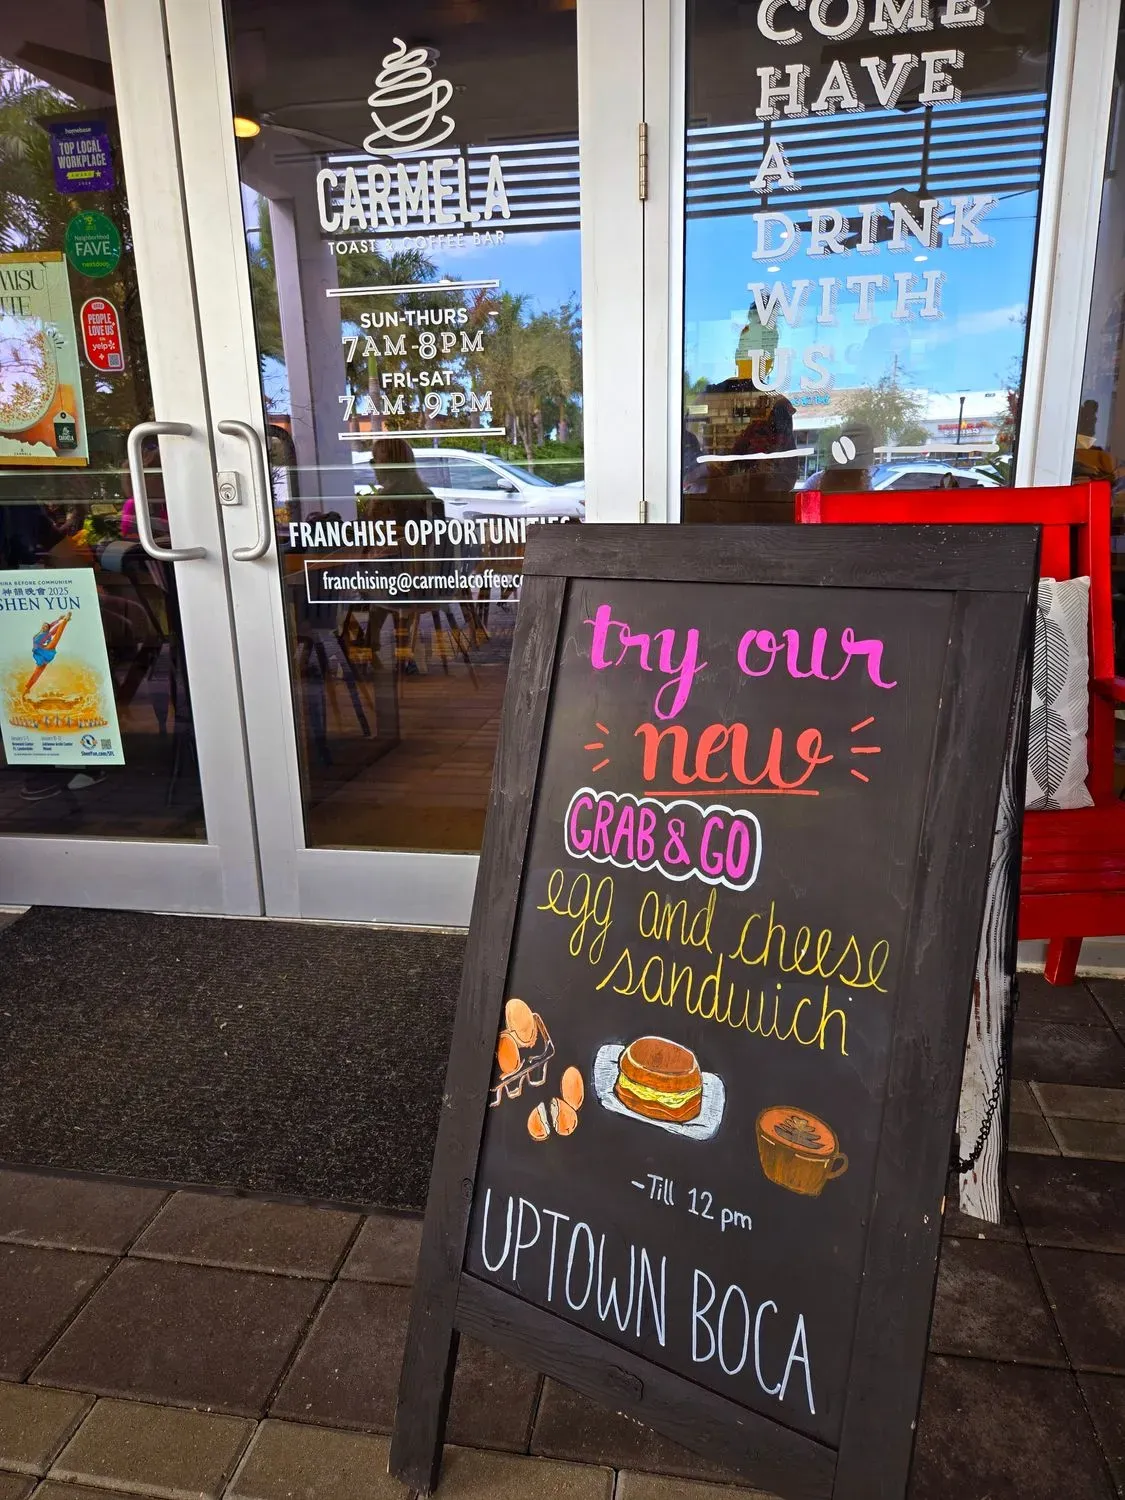 homebase
TOP LOCAL
WORKPLACE
AWARD
Neighborhood
FAVE
nextdoor
PEOPLE
LOVE US
yelp
CARMELA
TOAST & COFFEE BAR
SUN-THURS
7AM-8PM
FRI-SAT
7AM-9PM
FRANCHISE OPPORTUNITIES
franchising@carmelacoffee.co
COME
HAVE
A
DRINK
WITH
US
CHINA BEFORE COMMUNISM
神韻晚會 2025
SHEN YUN
try our
new
GRAB & GO
egg and cheese
sandwich
-Till 12 pm
UPTOWN BOCA